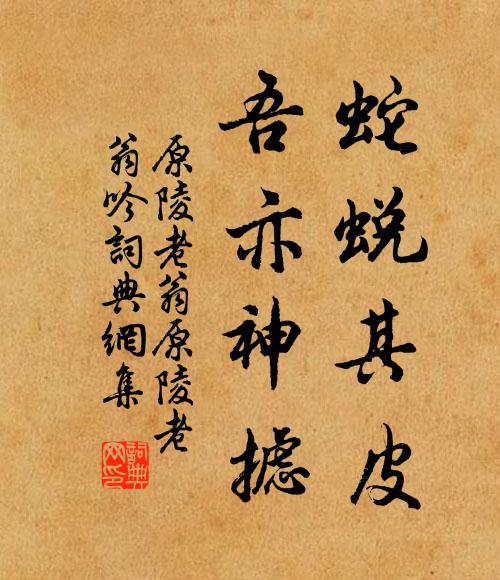 蛇蜕其皮
吾亦神攄
原陵老翁原陵老
翁吟詞典網集
詞典網印